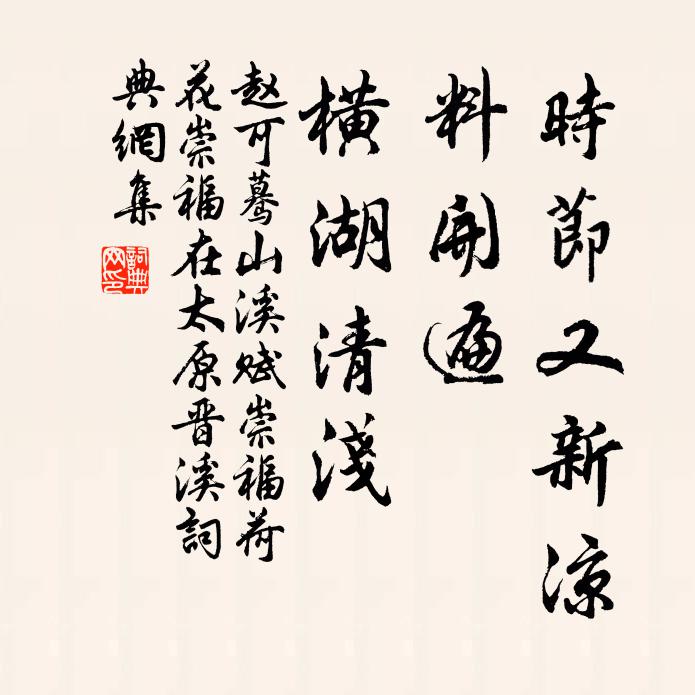 時節又新涼
料開遍
橫湖清淺
赵可驀山溪赋崇福荷
花崇福在太原晋溪詞
典網集
詞典網印